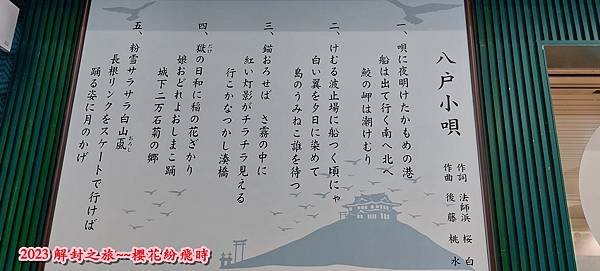 八戸小唄
作詞 法師浜 桜白
作曲 後藤 桃水
一、唄に夜明けたかもめの港
船は出て行く南へ北へ
鮫の岬は潮けむり
二、けむる波止場に船つく頃にゃ
白い翼を夕日に染めて
島のうみねこ誰を待つ
三、錨おろせば さ霧の中に
紅い灯影がチラチラ見える
行こかなつかし湊橋
四、獄の日和に稲の花ざかり
だけ
娘おどれよおしまこ踊
城下二万石菊の郷
五、粉雪サラサラ白山颪
おろし
長根リンクをスケートで行けば
踊る姿に月のかげ
2023 解封之旅---櫻花紛飛時